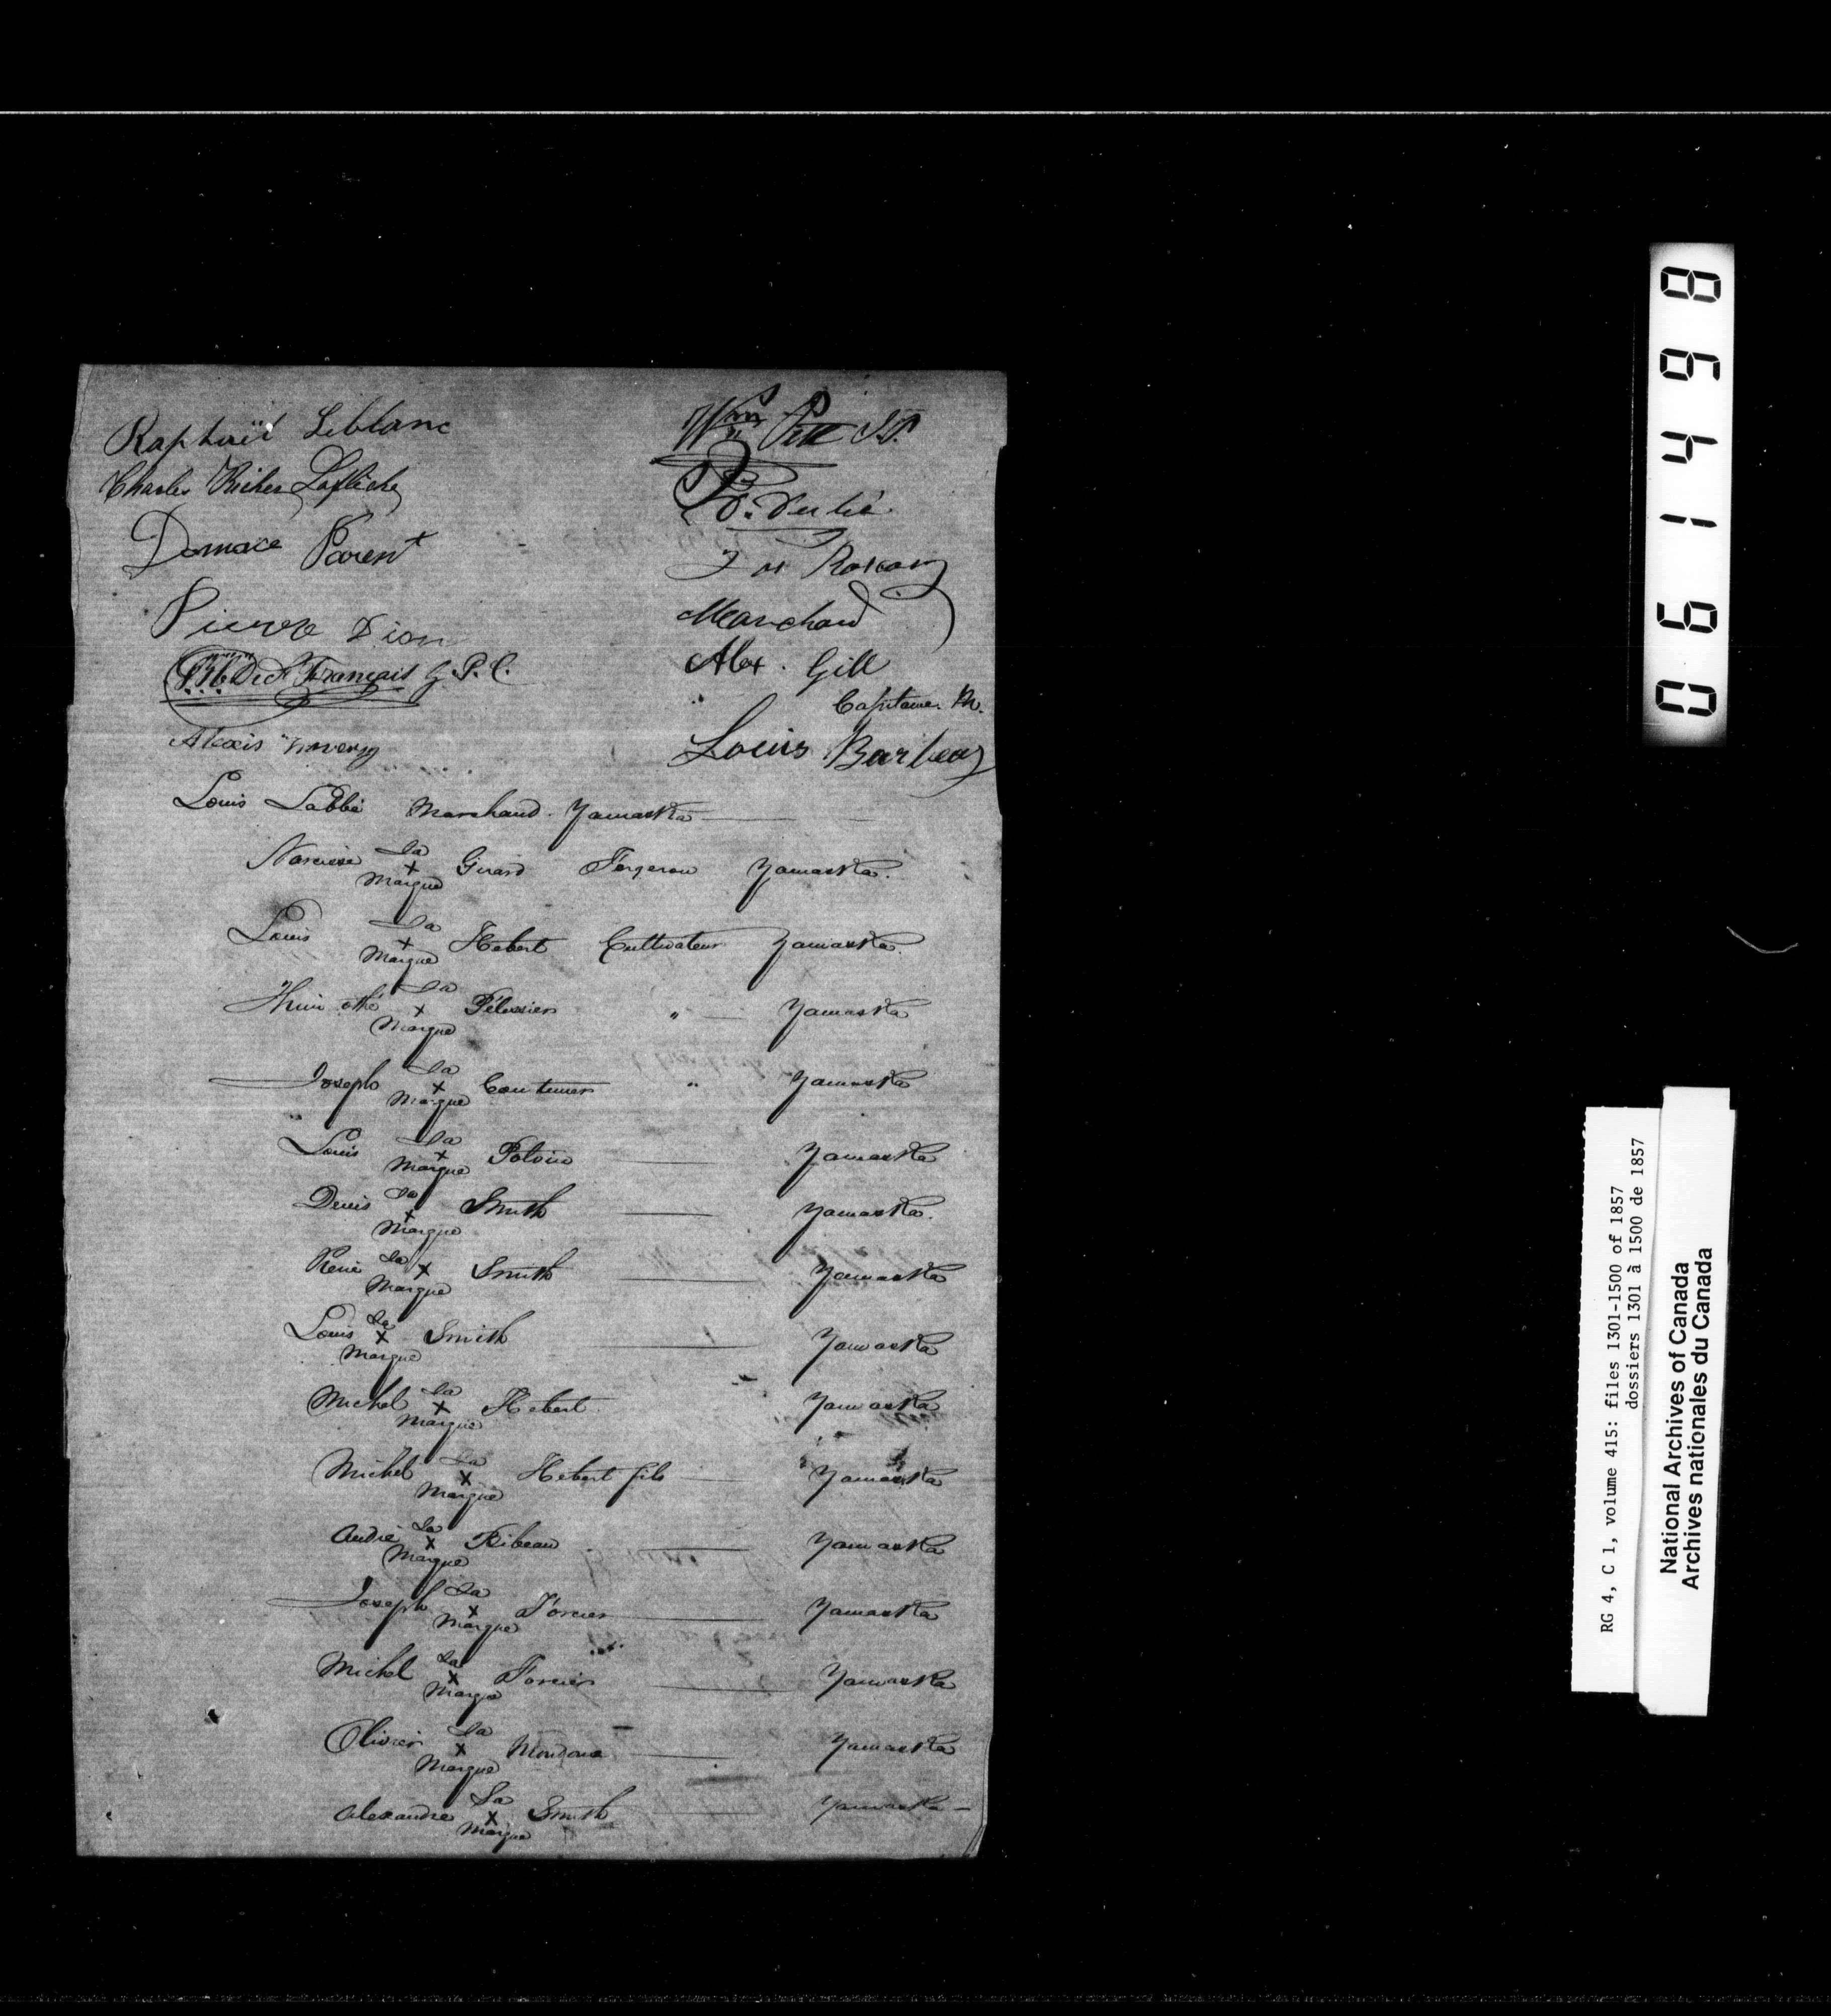 Raphaël Leblanc
Charles Richer Laflèche
Damace Parent
Pierre Dion
Français G. P. C.
Alexis
Wm Pitt J.P.
Marchand
Alex. Gill
Capitaine M.
Louis Barbeau
Louis Labbé Marchand. Yamaska
Narcisse Sa x Marque Girard Forgeron Yamaska.
Louis Sa x Marque Hebert Cultivateur Yamaska.
Sa x Marque Pélissier " Yamaska
Joseph Sa x Marque " Yamaska
Louis Sa x Marque Potvin Yamaska
Denis Sa x Marque Smith Yamaska.
René Sa x Marque Smith Yamaska
Louis Sa x Marque Smith Yamaska
Michel Sa x Marque Hebert Yamaska
Michel Sa x Marque Hebert fils Yamaska
André Sa x Marque Ribeau Yamaska
Joseph Sa x Marque Forcier Yamaska
Michel Sa x Marque Forcier Yamaska
Olivier Sa x Marque Mondoux Yamaska
Alexandre Sa x Marque Smith Yamaska
061498
RG 4, C 1, volume 415: files 1301-1500 of 1857
dossiers 1301 à 1500 de 1857
National Archives of Canada
Archives nationales du Canada